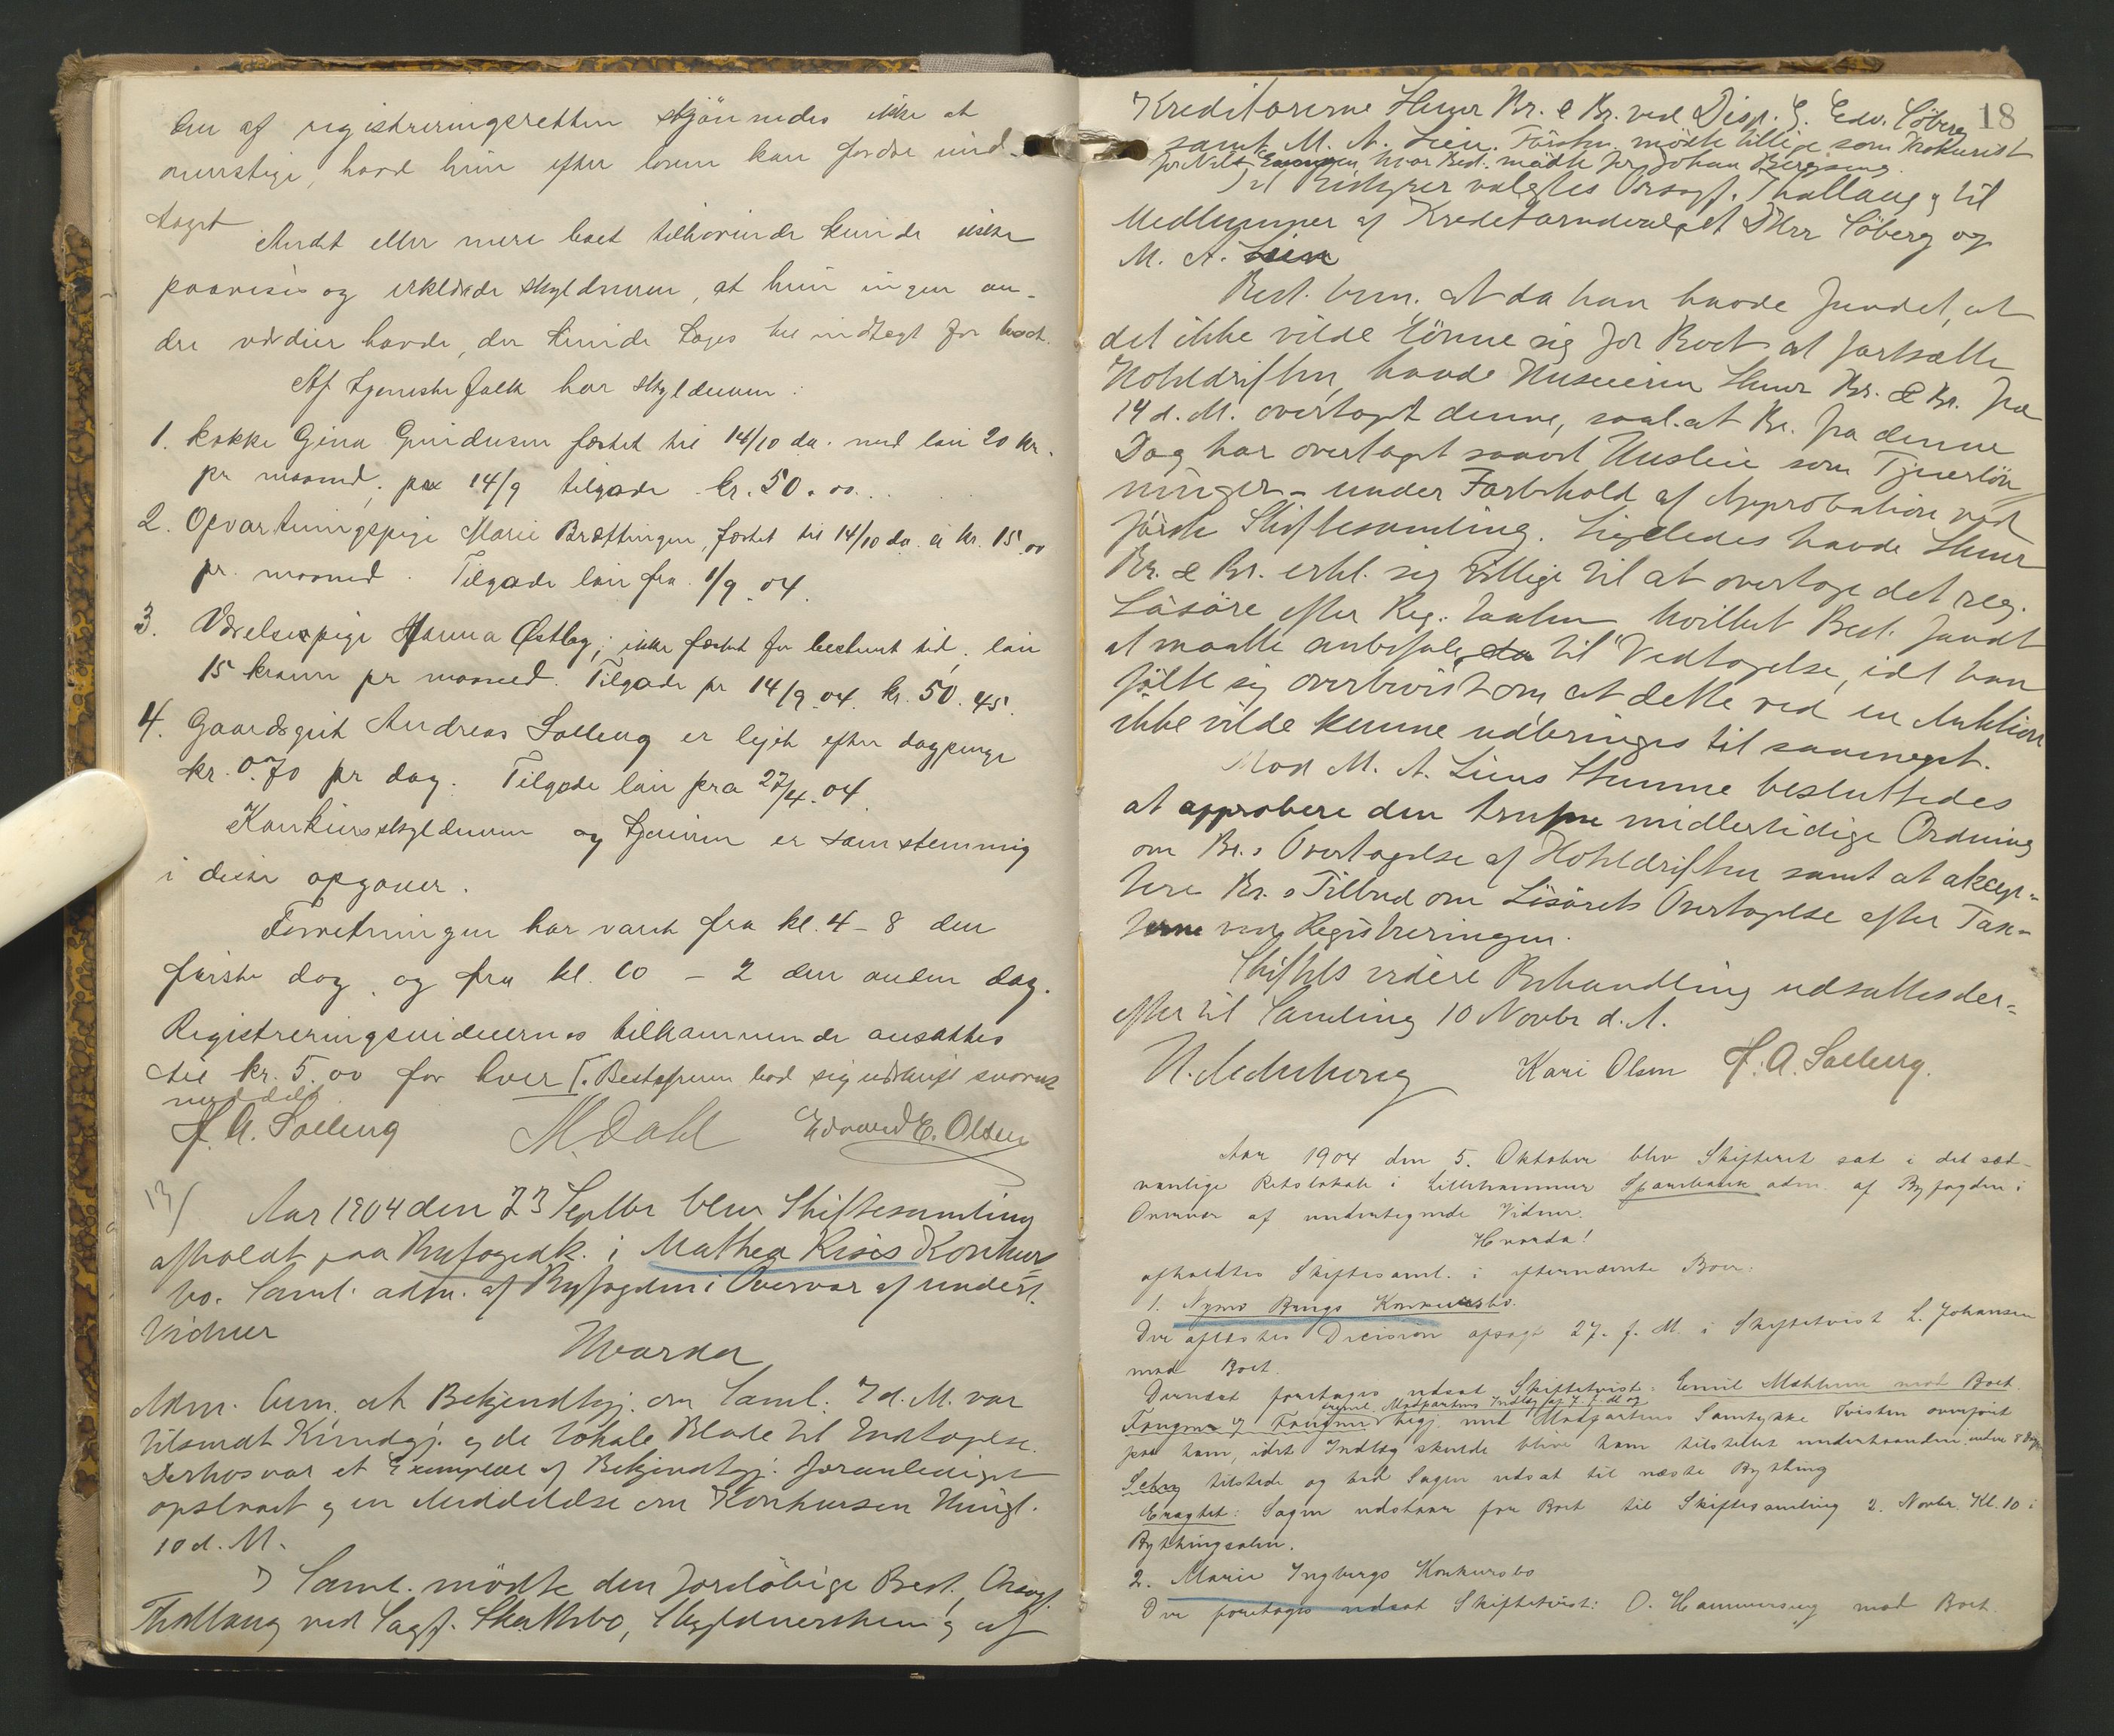 len af registreringsretten skjönnedes ikke at
overstige, hvad hun efter loven kan fordre und-
taget
Andt eller mere boet tilhørende kunde ikke
paavises og erklærede skyldneren, at hun ingen an-
dre værdier havde, der kunde tages til indtægt for boet.
Af tjenestefolk har skyldneren:
1. kokke Gina Gundersen fæstet til 14/10 da. med løn 20 kr.
pr maaned; pr 14/9 tilgode kr. 50.00.
2. Opvartningspige Marie Brættingen, fæstet til 14/10 da. á kr. 15.00
pr. maaned. Tilgode løn fra 1/9.04.
3. Værelsespige Anna Østby; ikke fæstet for bestemt tid; løn
15 kroner pr maaned. Tilgode pr 14/9.04. kr. 50.45.
4. Gaardsgut Andreas Solleng er lejet efter dagpenge
kr. 0.70 pr dag. Tilgode løn fra 27/4.04.
Konkursskyldneren og tjenerne er samstemmig
i disse opgaver.
Forretningen har varet fra kl. 4-8 den
første dag, og fra kl. 10 - 2 den anden dag.
Registreringsvidnernes tilkommende ansattes
til kr. 5.00 for hver [. Bestyreren bad sig udskrift snarest
meddelt.
H. A. Solleng M. Dahl Edvard E. Olsen
13/
Aar 1904 den 23 Septbr blev Skiftesamling
afholdt paa Byfogedk. i Mathea Riises Konkurs
bo. Saml. adm. af Byfogden i Overvær af undert.
Vidner
Hvorda
Adm. bem. at Bekjendtgj. om Saml. 7 d. M. var
tilsendt Kundgj. og de lokale Blade til Indtagelse.
Derhos var et Exemplar af Bekjendtgj. foranlediget
opslaaet og en Meddelelse om Konkursen thingl.
10 d. M.
I Saml. mödte den foreløbige Best., Orsagf.
Thallaug ved Sagf. Skattebo, Skyldnersken og af
18
Kreditorerne Hamar Br. & Br. ved Disp. G. Edv. Söberg
samt M. A. Lien. Förstn. mödte tillige som Prokurist
for Nils, hvor Best. mödte for Johan Bergseng.
Til Bestyrer valgtes Orsagf. Thallaug og til
Medlemmer af Kreditorudvalget DHrr Söberg og
M. A. Lien
Best. bem. at da han havde fundet, at
det ikke vilde lönne sig for Boet at fortsætte
Hoteldriften, havde Huseieren Hamar Br. & Br. fra
14 d. M. overtaget denne, saal. at Br. fra denne
Dag har overtaget saavel Husleie som Tjenerlön-
ninger - under Forbehold af Approbation ved
förste Skiftesamling. Ligeledes havde Hamar
Br. & Br. erkl. sig villige til at overtage det reg.
Løsøre efter Reg. taxten hvilket Best. fandt
at maatte anbefale til Vedtagelse, idet han
følte sig overbevist om, at dette ved en Auktion
ikke vilde kunne udbringes til saameget.
Mod M. A. Liens Stemme besluttedes
at approbere den trufne midlertidige Ordning
om Br.s Overtagelse af Hoteldriften samt at akcep-
tere Br.s Tilbud om Løsørets Overtagelse efter Tax-
terne ved Registreringen.
Skiftets videre Behandling udsattes der-
efter til Samling 10 Novbr d. A.
Kari Olsen H. A. Solleng.
Aar 1904 den 5. Oktober blev Skifteret sat i det sæd-
vanlige Retslokale i Lillehammer Sparebank adm. af Byfogden i
Overvær af undertegnede Vidner.
Hvorda!
afholdtes Skiftesaml. i efternævnte Boer:
1. Nymo Bergs Konkursbo.
Der aflæstes Decision afsagt 27. f. M. i Skiftetvist L. Johansen
mod Boet.
Dernæst foretages udsat Skiftetvist: Emil Mæhlum mod Boet
freml. Modpartens Indlæg af 7. f. M. og
Fougner begj. med Modpartens Samtykke Tvisten overført
paa ham, idet Indlæg skulde blive ham tilstillet underhaanden inden 8 Dage
Seberg tilstede og bad Sagen udsat til næste Bything
Eragtet: Sagen udstaar for Boet til Skiftesamling 2. Novbr. Kl. 10 i
Bythingsalen.
2. Marie Ingbergs Konkursbo
Der foretages udsat Skiftetvist: O. Hammerseng mod Boet